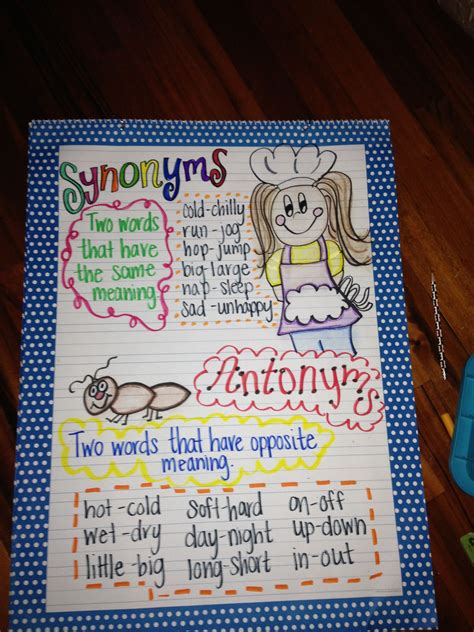 Synonyms
Two words
that have
the same
meaning.
cold-chilly
run-jog
hop-jump
big-large
nap-sleep
sad-unhappy
Antonyms
Two words that have opposite
meaning.
hot-cold soft-hard on-off
wet-dry day-night up-down
little-big long-short in-out